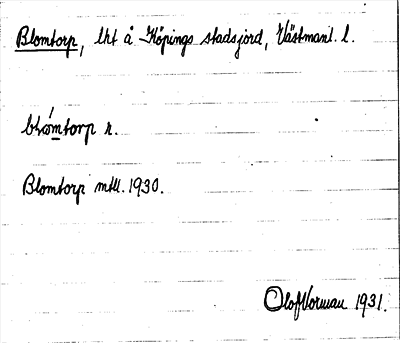 Blomtorp, lht å Köpings stadsjord, Västmanl. l.
blo̯mtorp n.
Blomtorp mtll. 1930.
Olof Norman 1931.